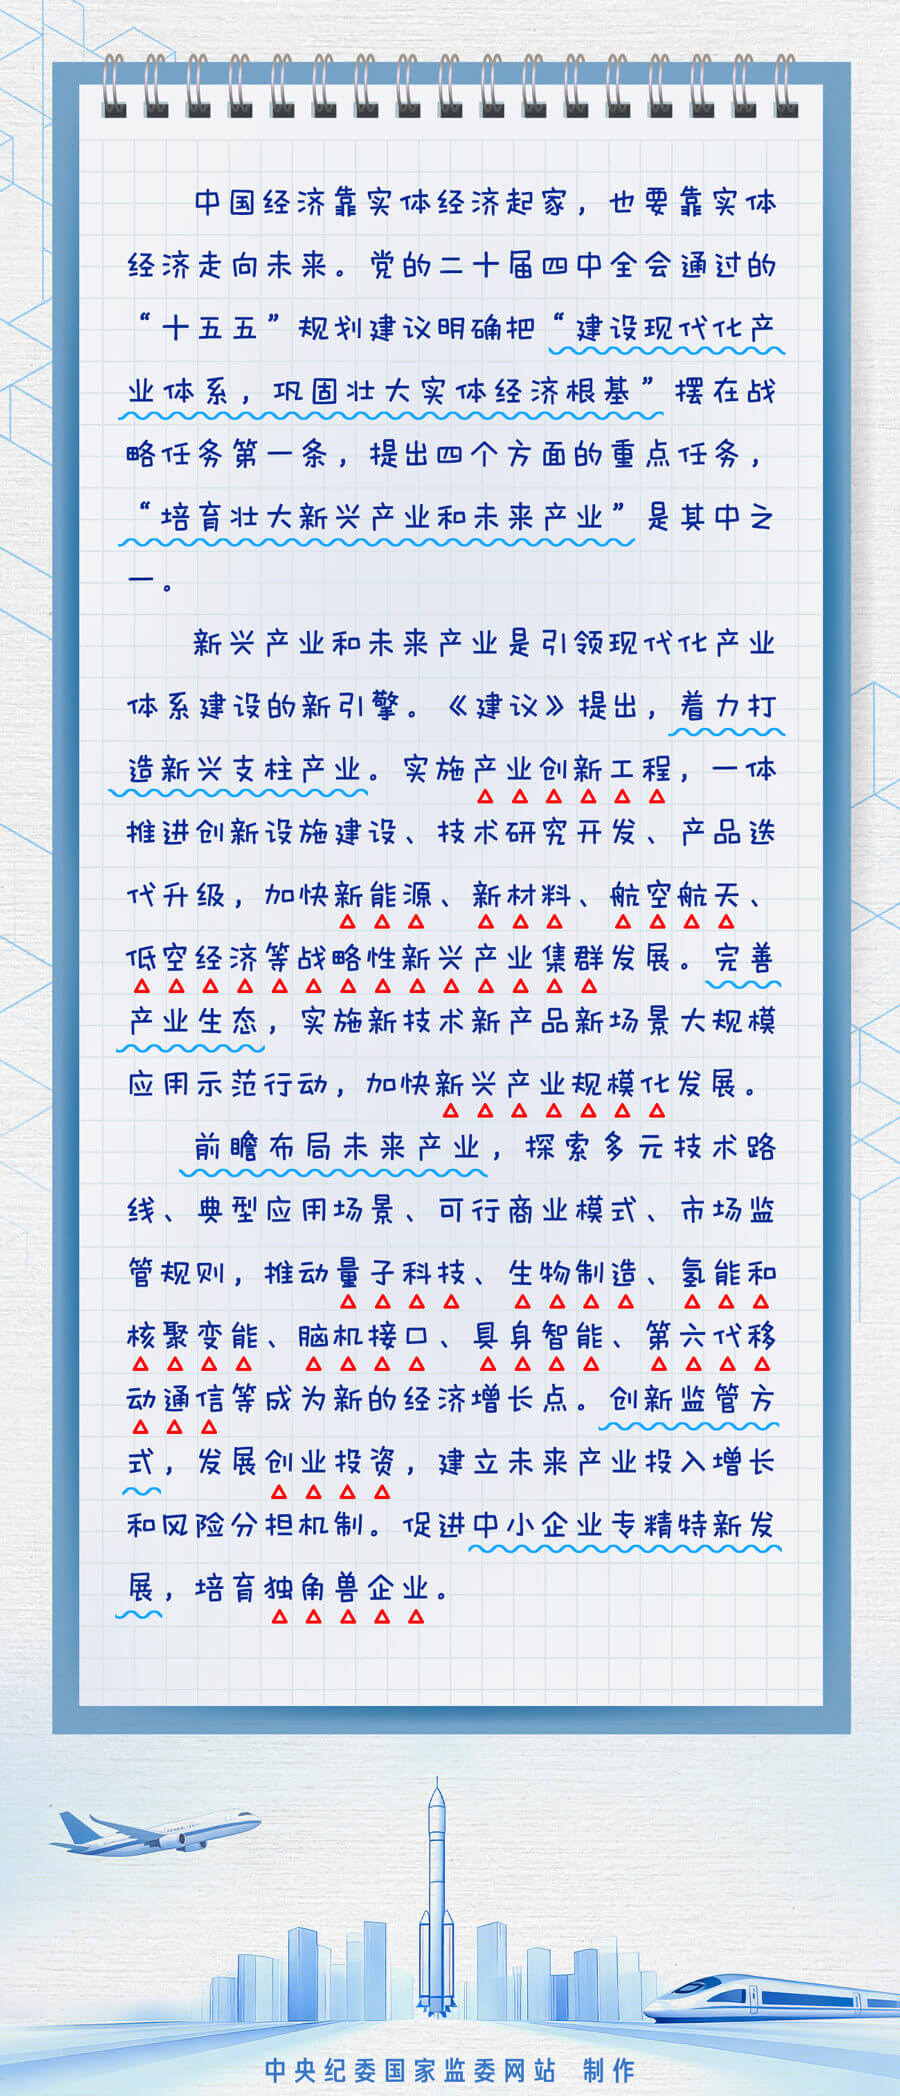 中国经济靠实体经济起家，也要靠实体
经济走向未来。党的二十届四中全会通过的
“十五五”规划建议明确把“建设现代化产
业体系，巩固壮大实体经济根基”摆在战
略任务第一条，提出四个方面的重点任务，
“培育壮大新兴产业和未来产业”是其中之
一。
新兴产业和未来产业是引领现代化产业
体系建设的新引擎。《建议》提出，着力打
造新兴支柱产业。实施产业创新工程，一体
推进创新设施建设、技术研究开发、产品迭
代升级，加快新能源、新材料、航空航天、
低空经济等战略性新兴产业集群发展。完善
产业生态，实施新技术新产品新场景大规模
应用示范行动，加快新兴产业规模化发展。
前瞻布局未来产业，探索多元技术路
线、典型应用场景、可行商业模式、市场监
管规则，推动量子科技、生物制造、氢能和
核聚变能、脑机接口、具身智能、第六代移
动通信等成为新的经济增长点。创新监管方
式，发展创业投资，建立未来产业投入增长
和风险分担机制。促进中小企业专精特新发
展，培育独角兽企业。
中央纪委国家监委网站 制作